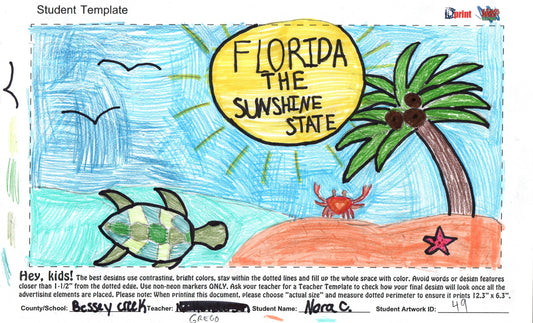 Student Template
iDprint
FLORIDA
THE
SUNSHINE
STATE
Hey, kids! The best designs use contrasting, bright colors, stay within the dotted lines and fill up the whole space with color. Avoid words or design features
closer than 1-1/2" from the dotted edge. Use non-neon markers ONLY. Ask your teacher for a Teacher Template to check how your final design will look once all the
advertising elements are placed. Please note: When printing this document, please choose "actual size" and measure dotted perimeter to ensure it prints 12.3" x 6.3".
County/School: Bessey Creek Teacher: Student Name: Nora C. Student Artwork ID: 49
GREGO